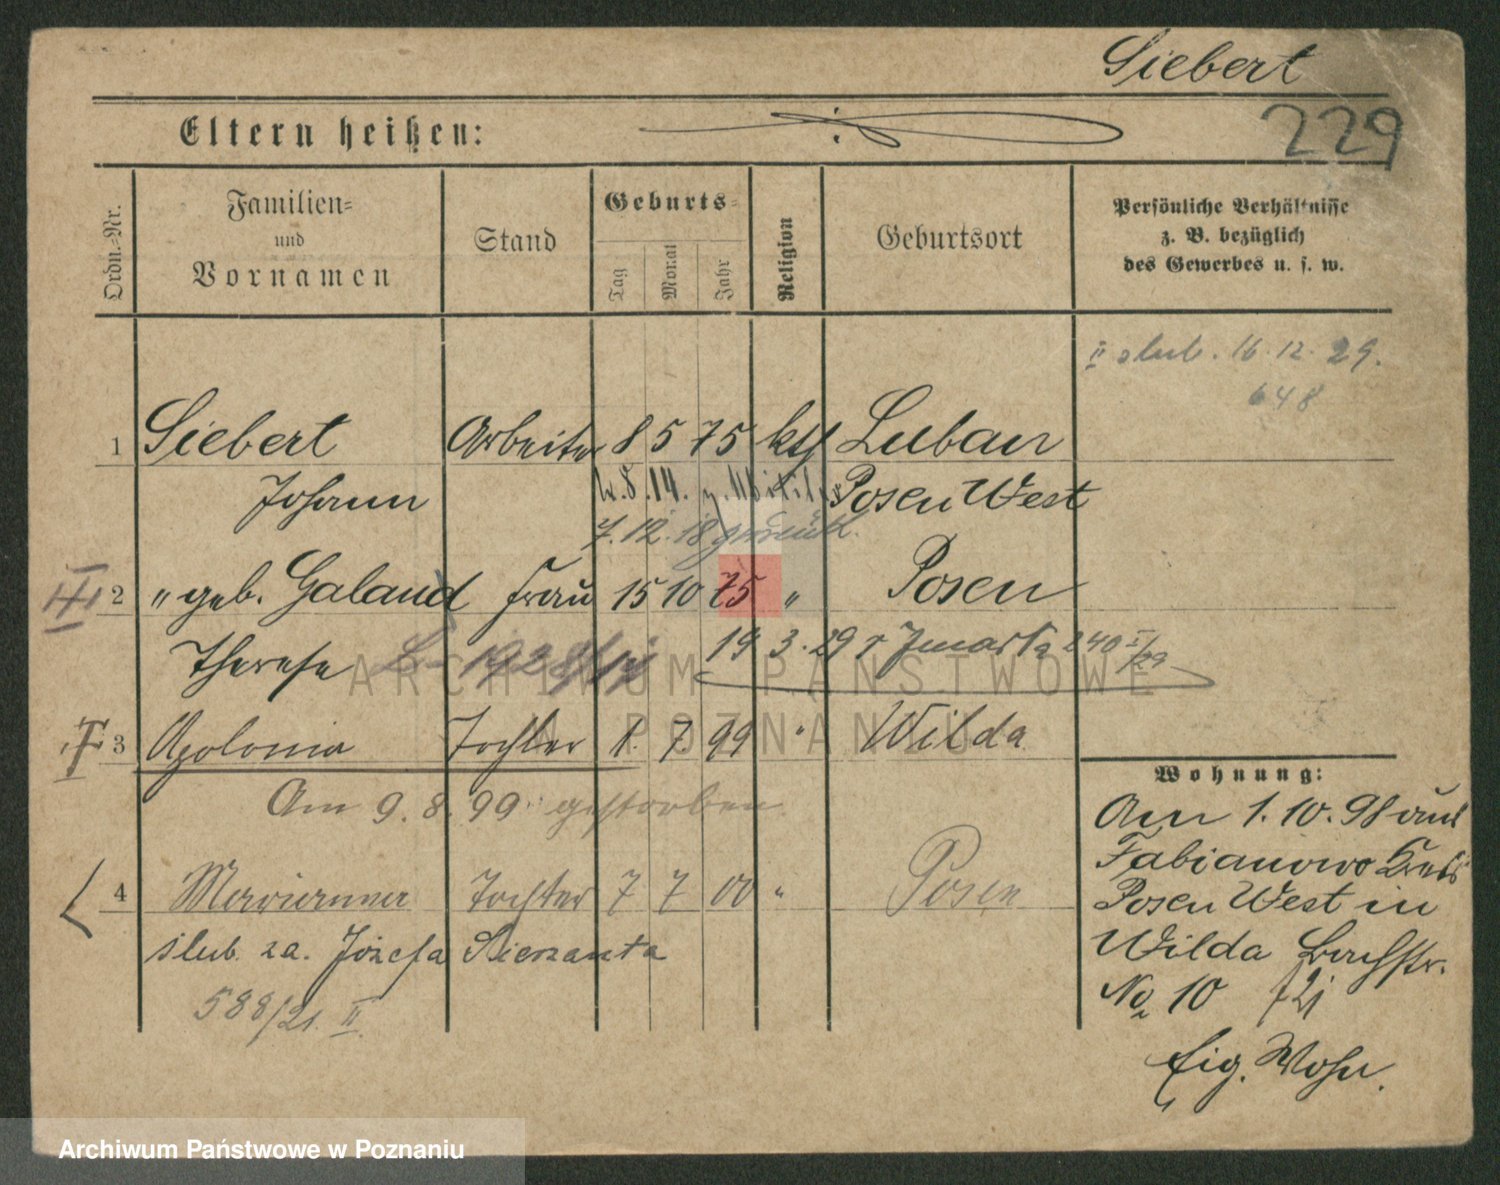 Siebert
229
Eltern heißen:
Ordn.-Nr.
Familien-
und
Vornamen
Stand
Geburts-
Tag
Monat
Jahr
Religion
Geburtsort
Persönliche Verhältnisse
z. B. bezüglich
des Gewerbes u. s. w.
II slub. 16.12.29.
648
1 Siebert Arbeiter 8 5 75 kth Luban
Johann Posen West
7.12.18
2 " geb. Galand Frau 15 10 75 " Posen
Therese 19 3. 29 r 240 I/29
3 Apolonia Tochter 1. 7. 99 " Wilda
Am 9.8.99 gestorben
4 Marianna Tochter 7 7 00 " Posen
slub. za. Józefa Sierzanta
588/21. II
Wohnung:
Am 1.10.98 aus
Fabianowo Kreis
Posen West in
Wilda Bachstr.
No 10
Eig. Wohn.
ARCHIWUM PAŃSTWOWE
W POZNANIU
Archiwum Państwowe w Poznaniu